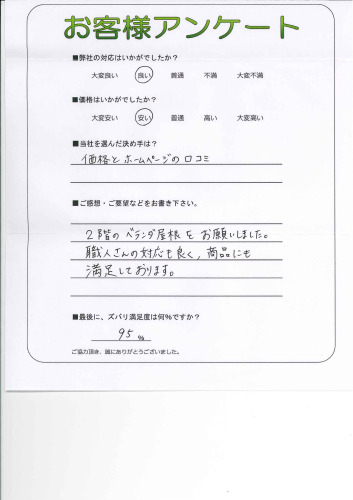 お客様アンケート
■弊社の対応はいかがでしたか?
大変良い 良い 普通 不満 大変不満
■価格はいかがでしたか?
大変安い 安い 普通 高い 大変高い
■当社を選んだ決め手は?
価格とホームページの口コミ
■ご感想・ご要望などをお書き下さい。
2階のベランダ屋根をお願いしました。
職人さんの対応も良く、商品にも
満足しております。
■最後に、ズバリ満足度は何%ですか?
95%
ご協力頂き、誠にありがとうございました。